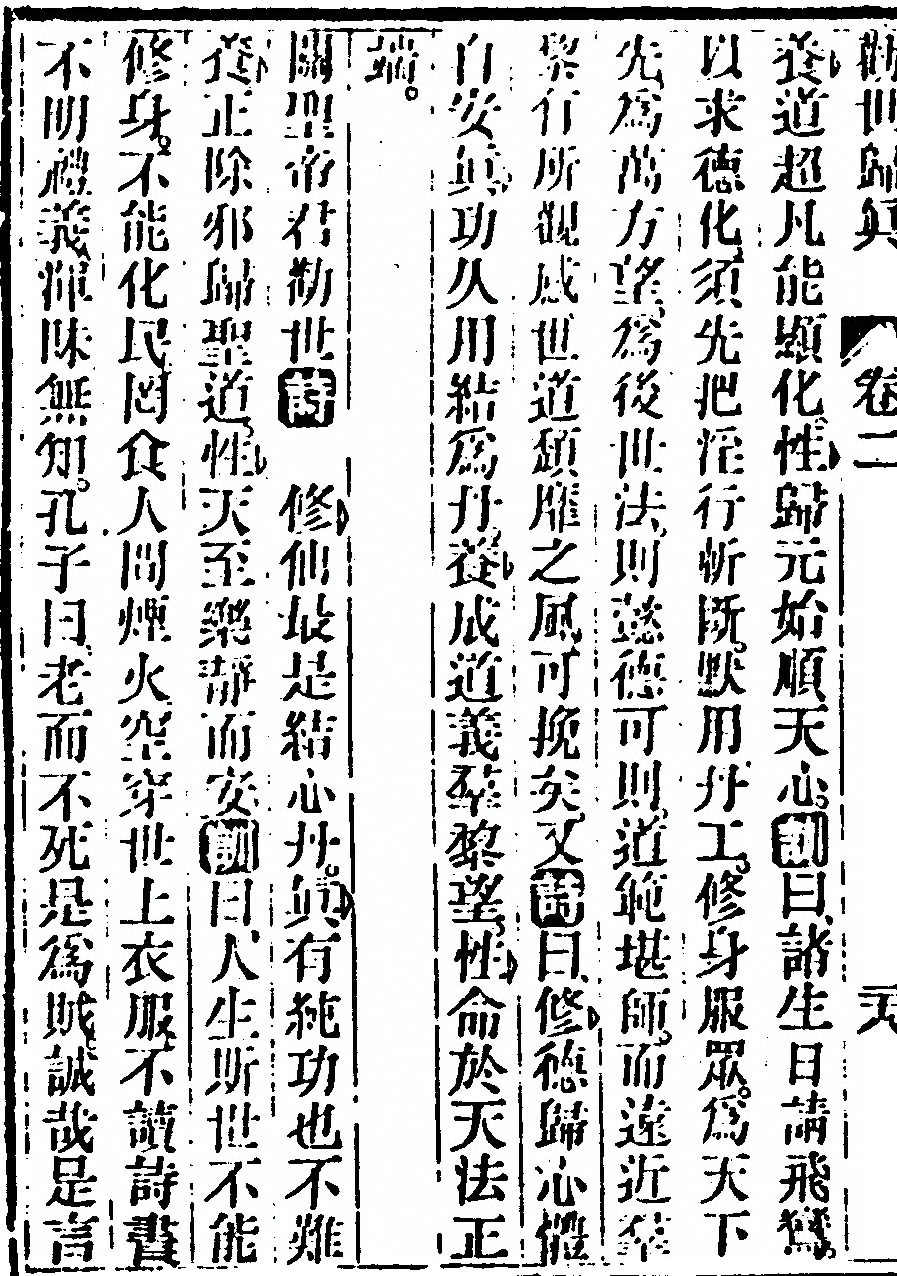 勸世歸真 卷二 天
養道超凡能顯化性歸元始順天心訓曰諸生日請飛鸞
以求德化須先把淫行斬斷默用丹工修身服眾為天下
先為萬方望為後世法則懿德可則道範堪師而遠近羣
黎有所觀感世道頹靡之風可挽矣又詩曰修德歸心體
自安真功久用結為丹養成道義羣黎望性命於天法正
端
關聖帝君勸世詩 修仙最是結心丹真有純功也不難
養正除邪歸聖道性天至樂靜而安訓曰人生斯世不能
修身不能化民罔食人間煙火空穿世上衣服不讀詩書
不明禮義渾昧無知孔子曰老而不死是為賊誠哉是言